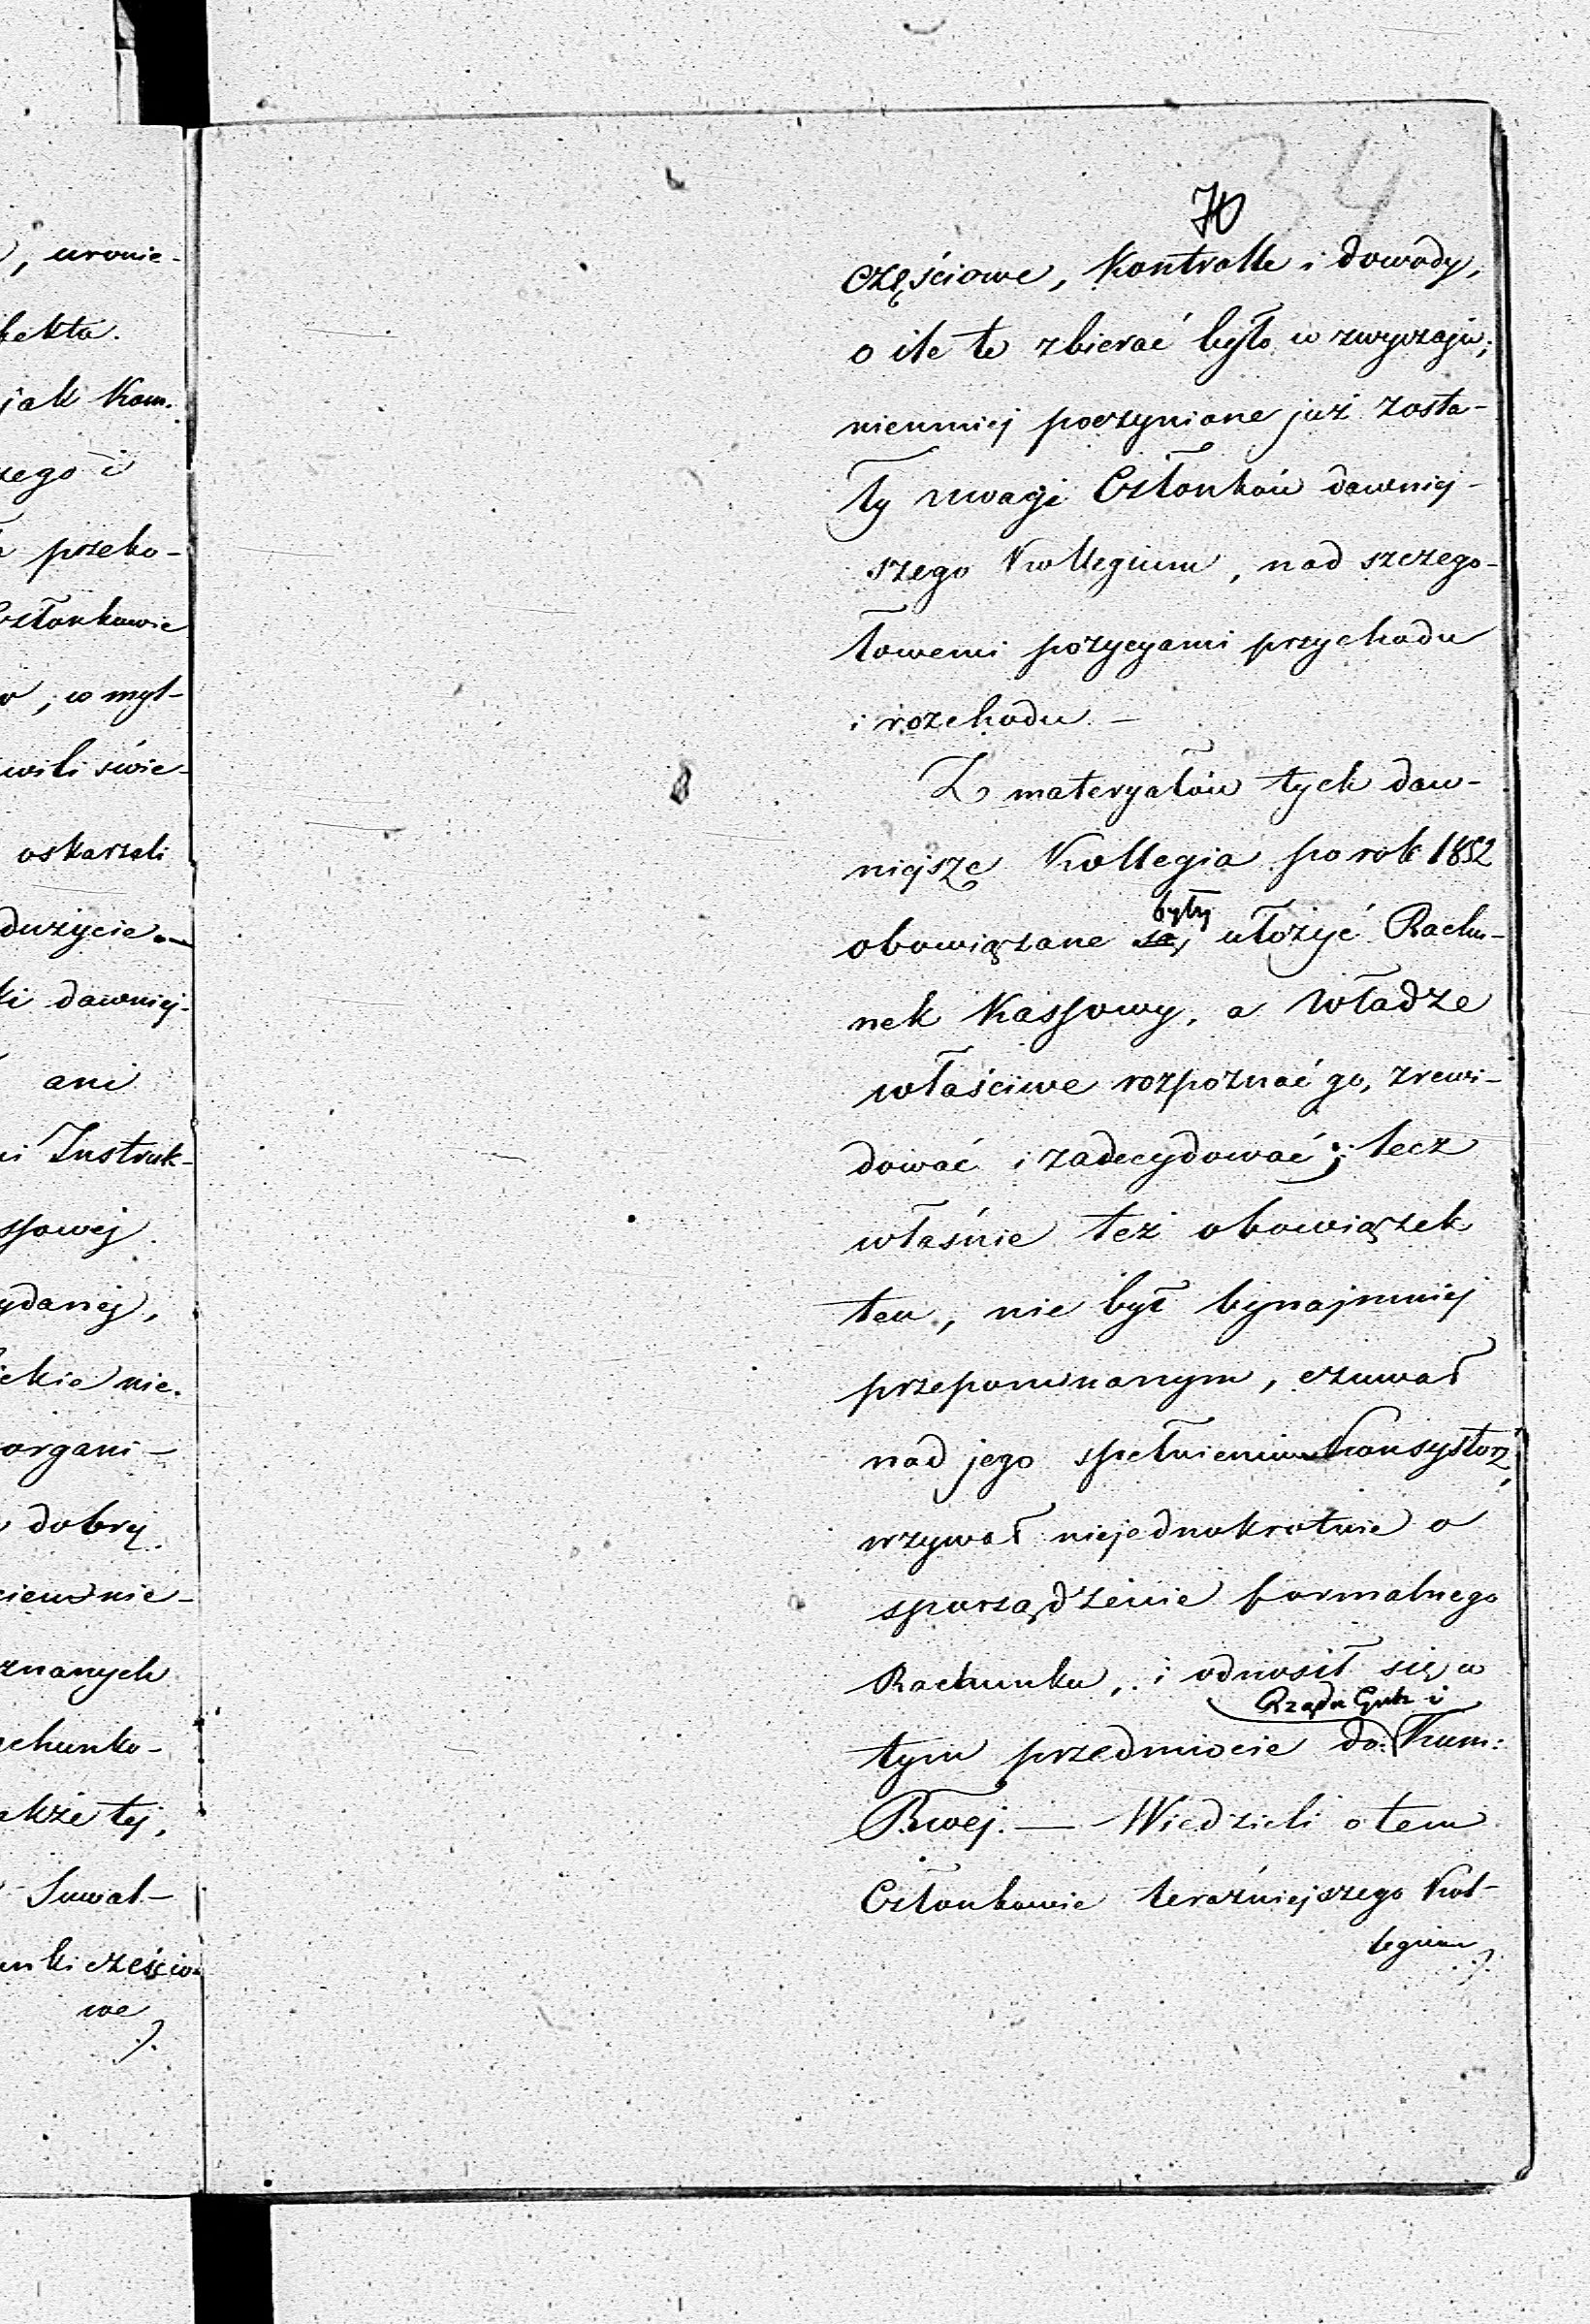 , uronie-
fekta.
jak Kom.
zego i
przeko-
Członkowie
, w myl-
wili świe-
oskarzali
dużycie. —
ki dawniej-
ani
i Instruk-
ssowej
ydanej,
ckie nie.
organi-
dobrej
ciewnie-
znanych
chunko-
akże tej,
Suwal-
nki częścio-
we
34
70
częściowe, Kontrolle i dowody,
o ile te zbierać było w zwyczaju;
niemniej poczynione już zosta-
ły uwagi Członków dawniej-
szego Kollegium, nad szczegó-
łowemi pozycyami przychodu
i rozchodu —
Z materyałów tych daw-
niejsze Kollegia po rok 1852
były
obowiązane są ułożyć Rachu-
nek Kassowy, a Władze
właściwe rozpoznać go, zrewi-
dować i zadecydować; lecz
właśnie też obowiązek
ten, nie był bynajmniej
przepominanym, czuwał
nad jego spełnieniem Konsystorz,
wzywał niejednokrotnie o
sporządzenie formalnego
Rachunku, i odnosił się w
Rządu Gub i
tym przedmiocie do Kom:
Rwej. — Wiedzieli o tem
Członkowie teraźniejszego Kol-
legium